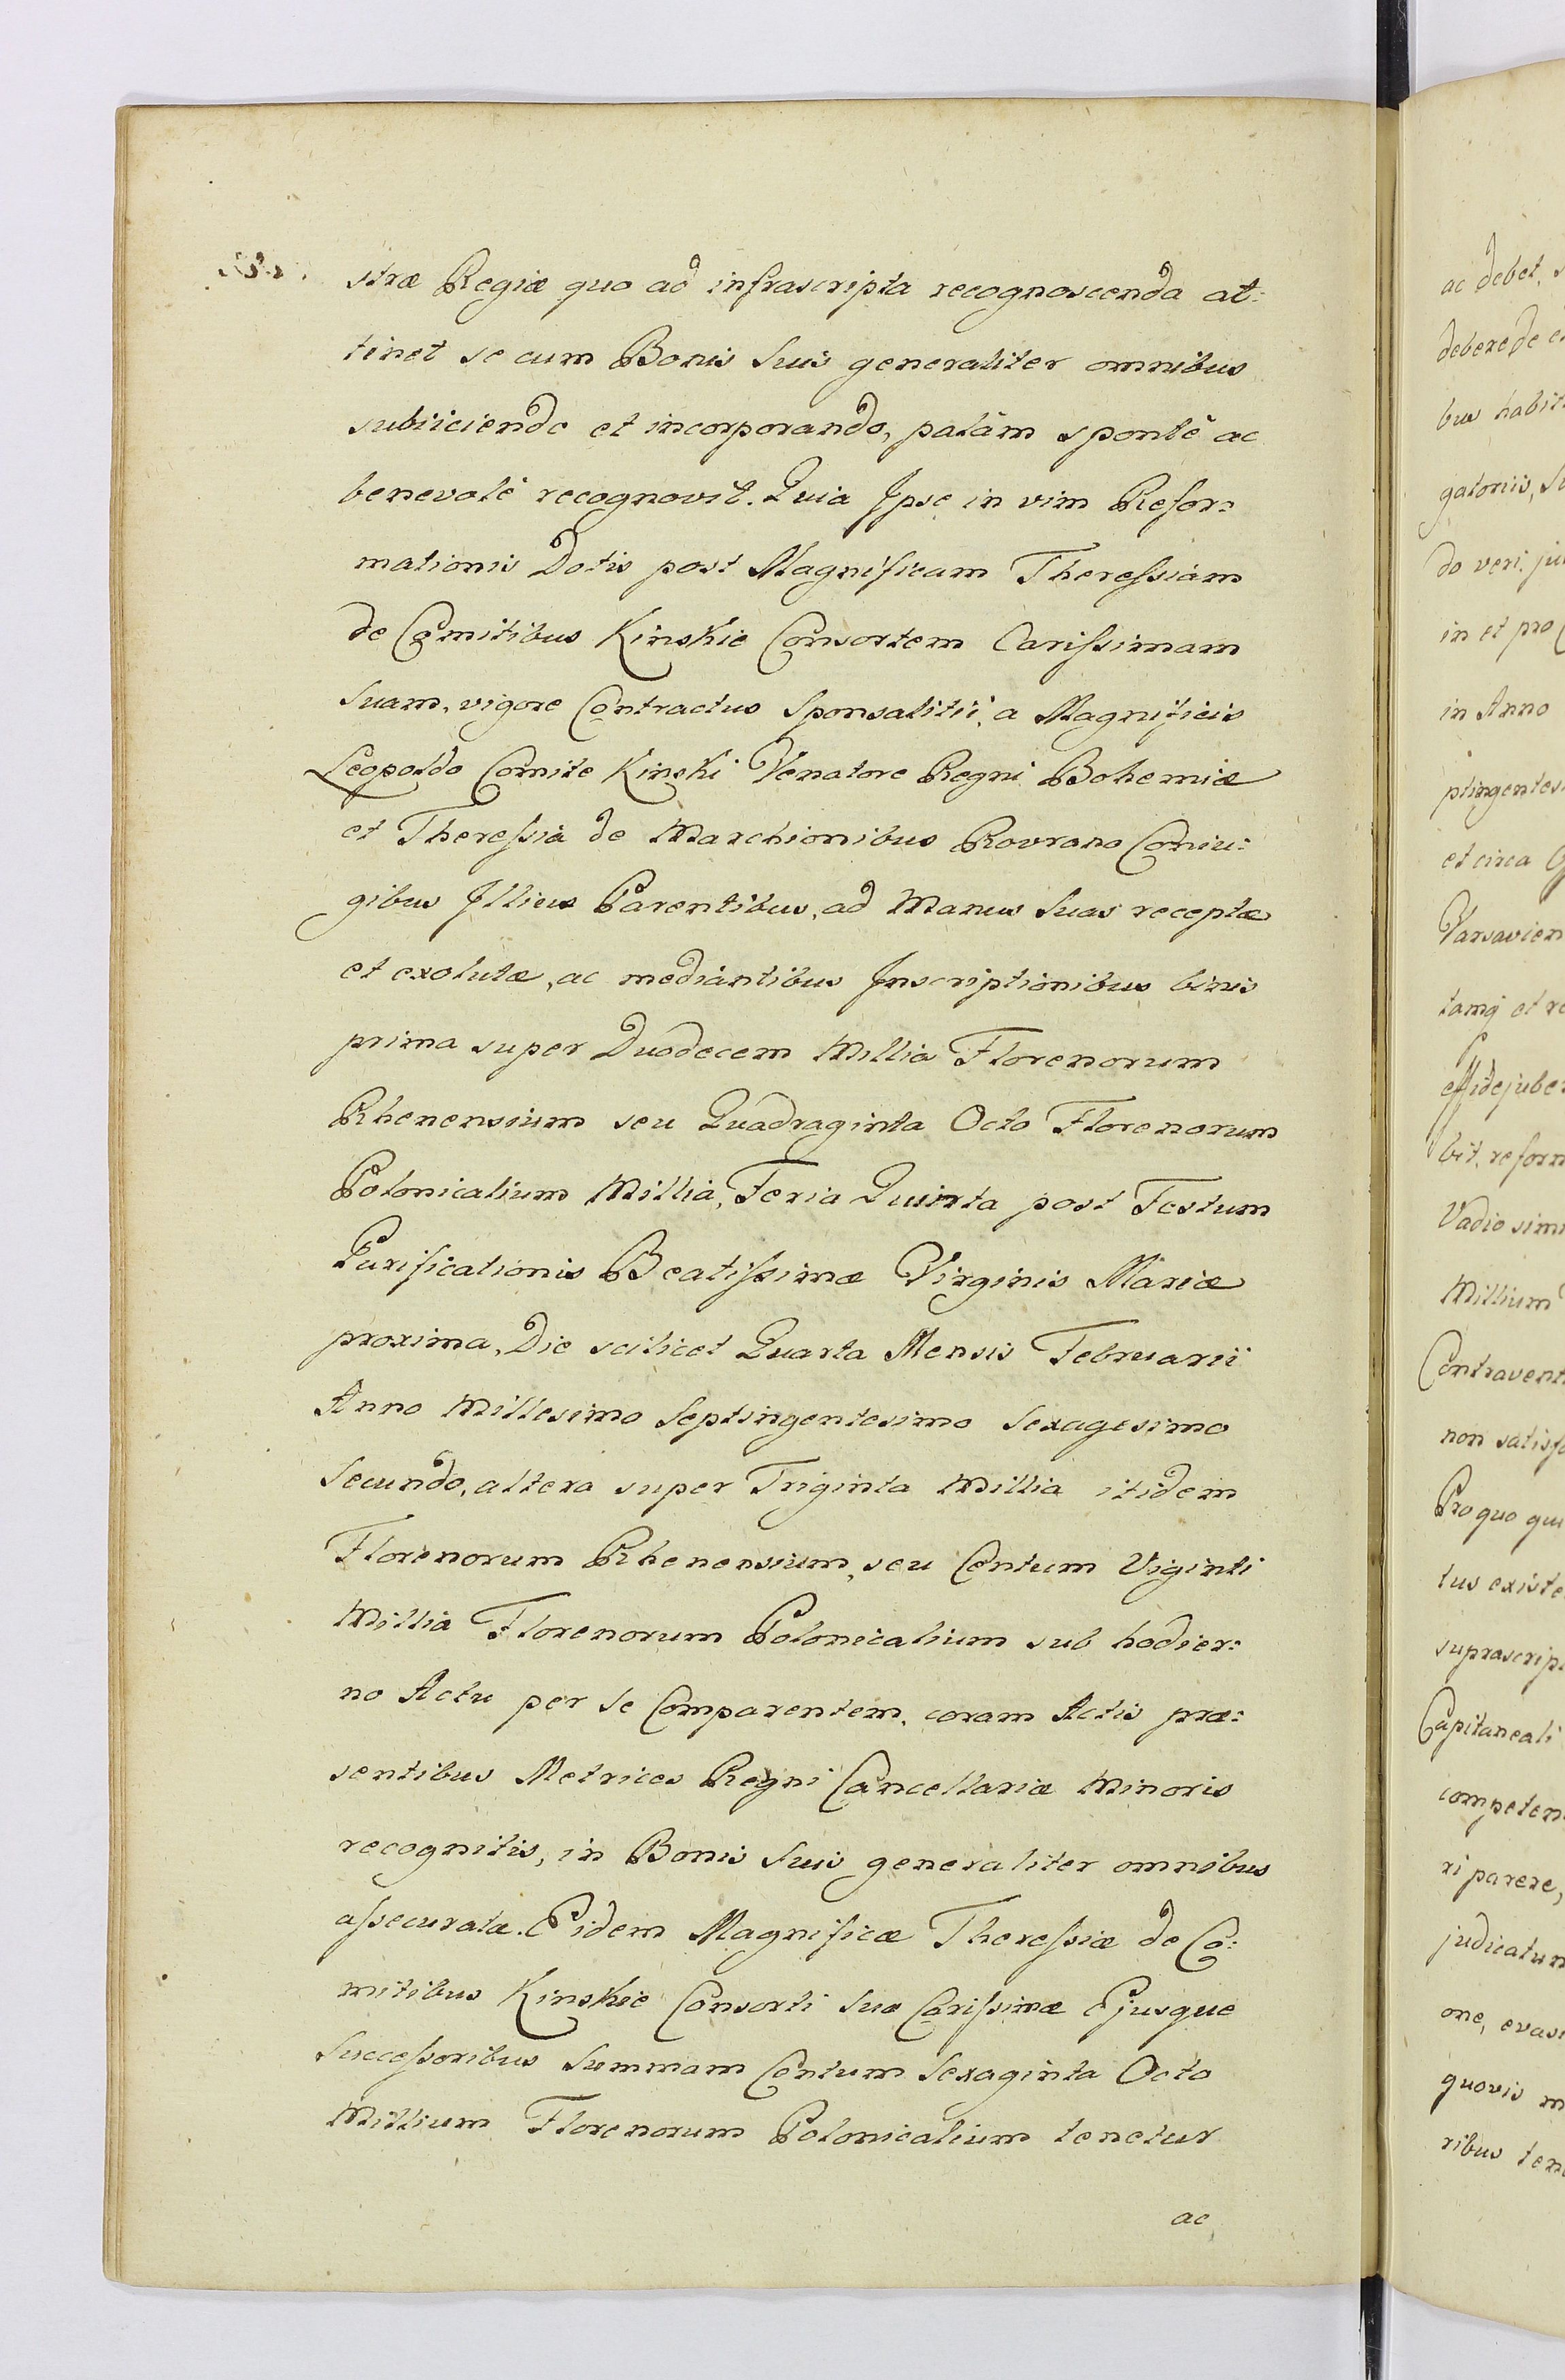 stræ Regiæ quo ad infrascripta recognoscenda at:
tinet se cum Bonis Suis generaliter omnibus
subiiciendo et incorporando, palàm spontè ac
benevolè recognovit. Quia Ipse in vim Refor:
mationis Dotis post Magnificam Theressiam
de Comitibus Kinskie Consortem Carissimam
Suam, vigore Contractus Sponsalitii, a Magnificis
Leopoldo Comite Kinski Venatore Regni Bohemiæ
et Theressia de Marchionibus Rovrano Coniu:
gibus Illius Parentibus, ad Manus Suas receptæ
et exolutæ, ac mediantibus Inscriptionibus binis
prima super Duodecem Millia Florenorum
Rhenensium seu Quadraginta Octo Florenorum
Polonicalium Millia, Feria Quinta post Festum
Purificationis Beatissimæ Virginis Mariæ
proxima, Die scilicet Quarta Mensis Februarii
Anno Millesimo Septingentesimo Sexagesimo
Secundo, altera super Triginta Millia itidem
Florenorum Rhenensium, seu Centum Viginti
Millia Florenorum Polonicalium sub hodier:
no Actu per se Comparentem, coram Actis præ:
sentibus Metrices Regni Cancellariæ Minoris
recognitis, in Bonis Suis generaliter omnibus
assecuratæ. Eidem Magnificæ Theressiæ de Co:
mitibus Kinskie Consorti Suæ Carissimæ Ejusque
Successoribus Summam Centum Sexaginta Octo
Millium Florenorum Polonicalium tenetur
ac
ac debet,
debere de
bus habit
gatoriis,
do veri
in et pro
in Anno
ptingentes
et circa
Varsavien
tamq et
effidejube
bit, reform
Vadio simi
Millium
Contravent
non satisf
Pro quo qui
tus existe
suprascrip
Capitaneali
competen
ri parere,
judicatum
one, evasi
quovis m
ribus ten